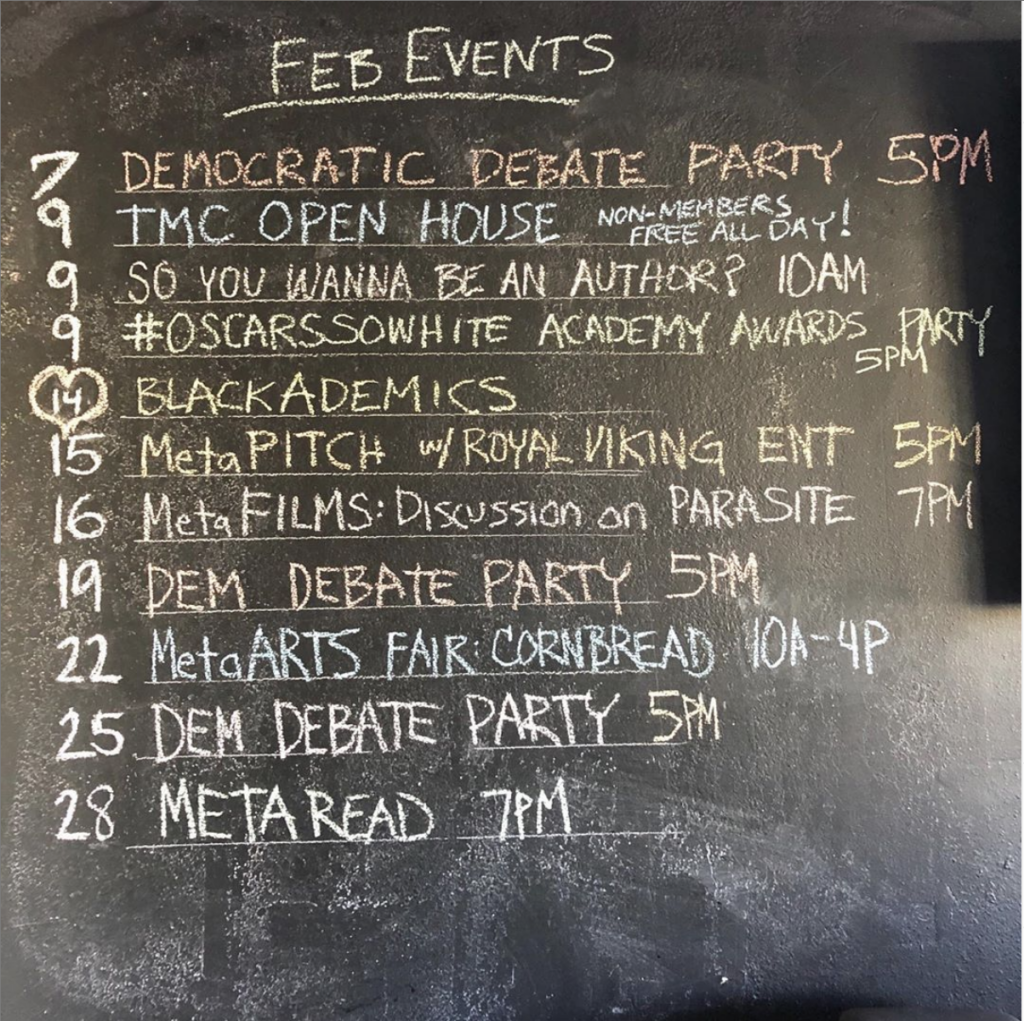 FEB EVENTS
7 DEMOCRATIC DEBATE PARTY 5PM
9 TMC OPEN HOUSE NON-MEMBERS
FREE ALL DAY!
9 SO YOU WANNA BE AN AUTHOR? 10AM
9 #OSCARSSOWHITE ACADEMY AWARDS PARTY
5PM
14 BLACKADEMICS
15 MetaPITCH w/ ROYAL VIKING ENT 5PM
16 MetaFILMS: Discussion on PARASITE 7PM
19 DEM DEBATE PARTY 5PM
22 MetaARTS FAIR: CORNBREAD 10A-4P
25 DEM DEBATE PARTY 5PM
28 METAREAD 7PM